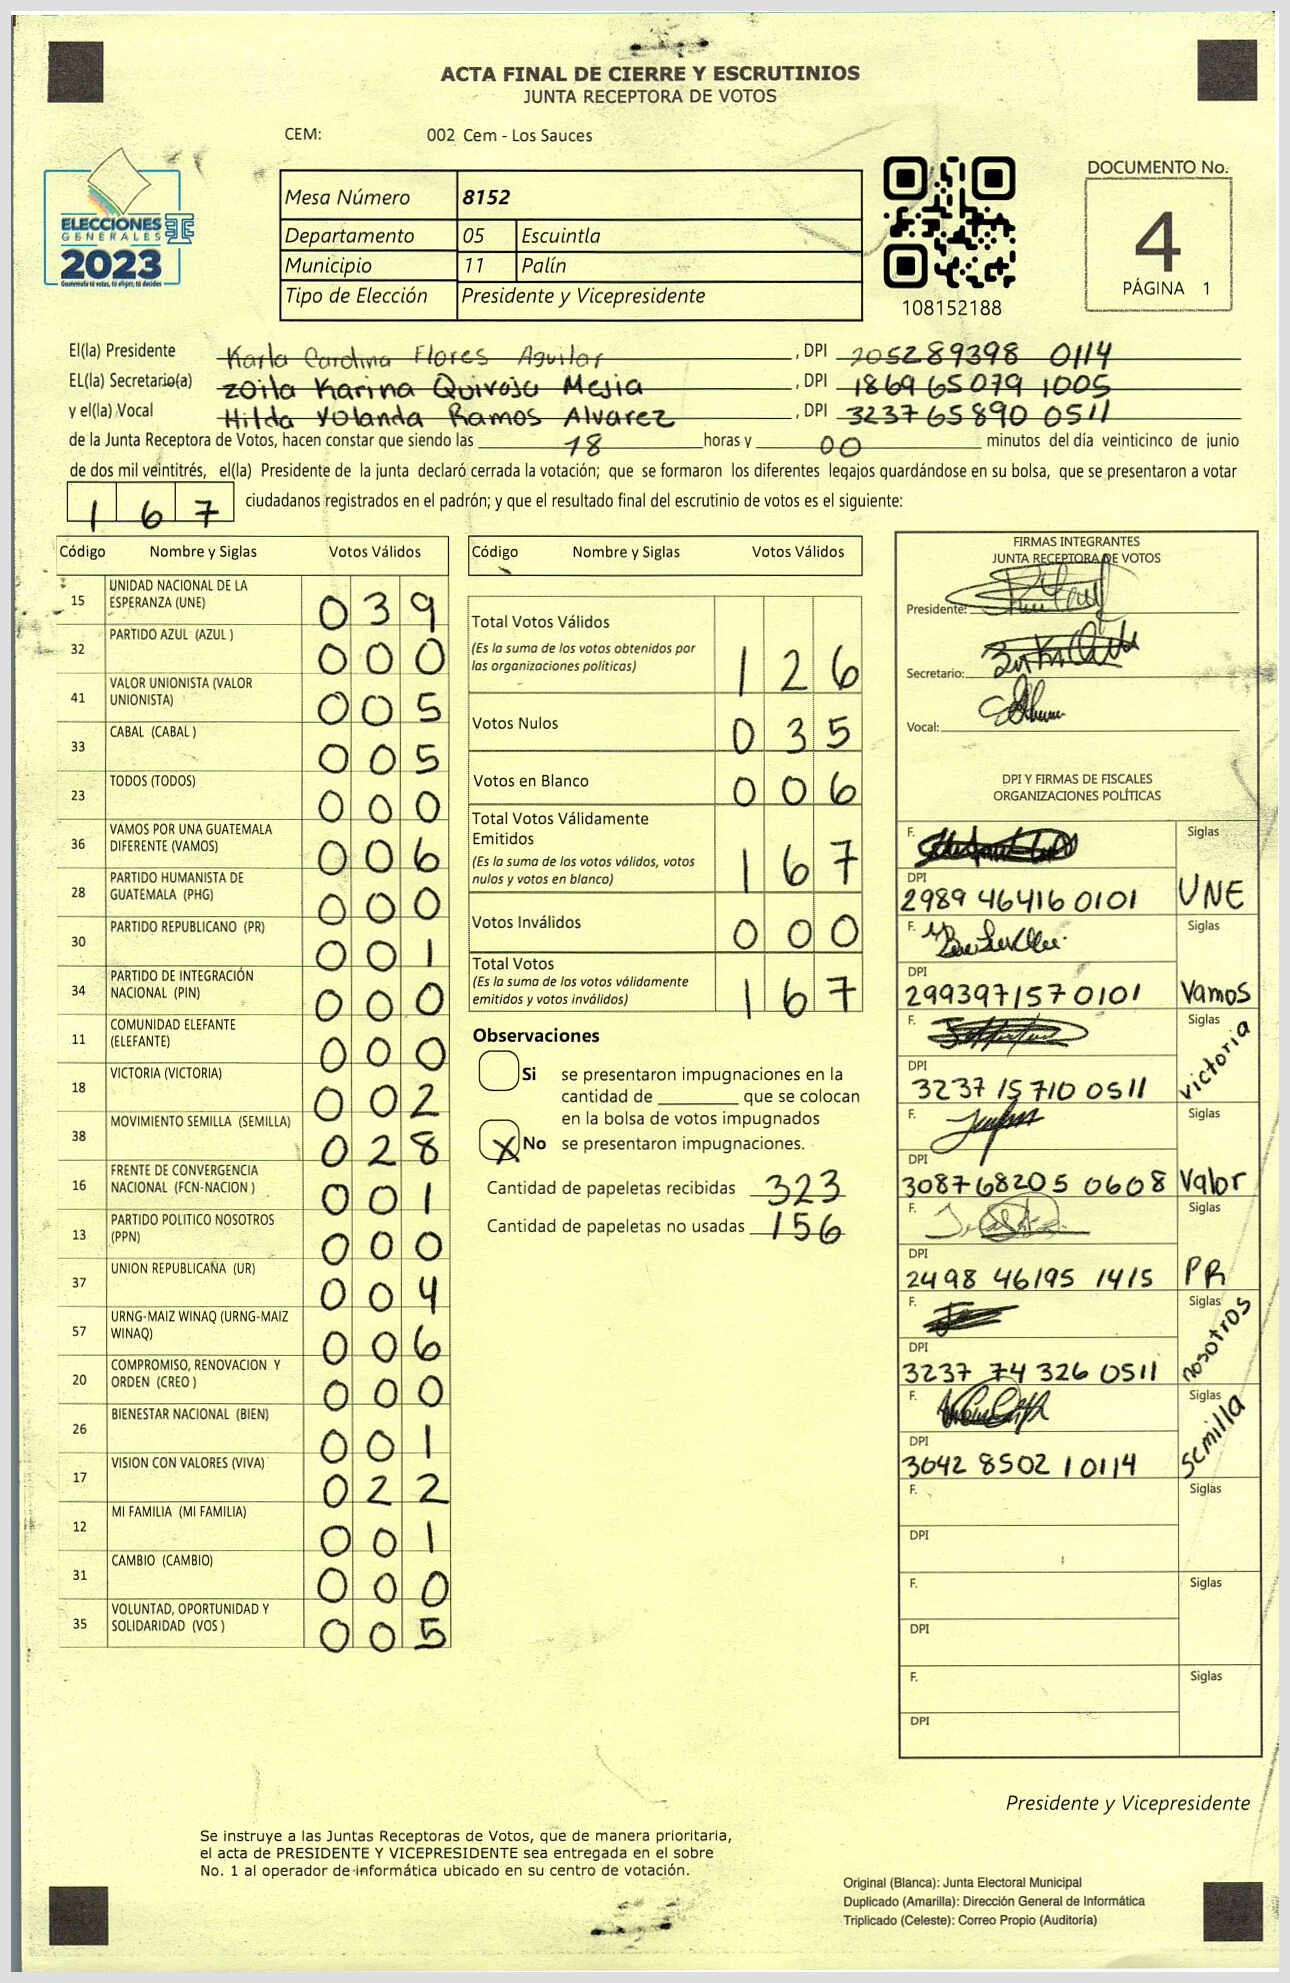 ACTA FINAL DE CIERRE Y ESCRUTINIOS
JUNTA RECEPTORA DE VOTOS
CEM: 002 Cem - Los Sauces
ELECCIONES
GENERALES
2023
Guatemala tú votas, tú eliges, tú decides
Mesa Número 8152
Departamento 05 Escuintla
Municipio 11 Palín
Tipo de Elección Presidente y Vicepresidente
108152188
DOCUMENTO No.
4
PÁGINA 1
El(la) Presidente Karla Carolina Flores Aguilar , DPI 205289398 0114
EL(la) Secretario(a) Zoila Karina Quiroja Mejia , DPI 1869 65079 1005
y el(la) Vocal Hilda Yolanda Ramos Alvarez , DPI 3237 65890 0511
de la Junta Receptora de Votos, hacen constar que siendo las 18 horas y 00 minutos del día veinticinco de junio
de dos mil veintitrés, el(la) Presidente de la junta declaró cerrada la votación; que se formaron los diferentes legajos guardándose en su bolsa, que se presentaron a votar
1 6 7 ciudadanos registrados en el padrón; y que el resultado final del escrutinio de votos es el siguiente:
Código Nombre y Siglas Votos Válidos
15 UNIDAD NACIONAL DE LA
ESPERANZA (UNE) 0 3 9
32 PARTIDO AZUL (AZUL ) 0 0 0
41 VALOR UNIONISTA (VALOR
UNIONISTA) 0 0 5
33 CABAL (CABAL ) 0 0 5
23 TODOS (TODOS) 0 0 0
36 VAMOS POR UNA GUATEMALA
DIFERENTE (VAMOS) 0 0 6
28 PARTIDO HUMANISTA DE
GUATEMALA (PHG) 0 0 0
30 PARTIDO REPUBLICANO (PR) 0 0 1
34 PARTIDO DE INTEGRACIÓN
NACIONAL (PIN) 0 0 0
11 COMUNIDAD ELEFANTE
(ELEFANTE) 0 0 0
18 VICTORIA (VICTORIA) 0 0 2
38 MOVIMIENTO SEMILLA (SEMILLA) 0 2 8
16 FRENTE DE CONVERGENCIA
NACIONAL (FCN-NACION ) 0 0 1
13 PARTIDO POLITICO NOSOTROS
(PPN) 0 0 0
37 UNION REPUBLICANA (UR) 0 0 4
57 URNG-MAIZ WINAQ (URNG-MAIZ
WINAQ) 0 0 6
20 COMPROMISO, RENOVACION Y
ORDEN (CREO ) 0 0 0
26 BIENESTAR NACIONAL (BIEN) 0 0 1
17 VISION CON VALORES (VIVA) 0 2 2
12 MI FAMILIA (MI FAMILIA) 0 0 1
31 CAMBIO (CAMBIO) 0 0 0
35 VOLUNTAD, OPORTUNIDAD Y
SOLIDARIDAD (VOS ) 0 0 5
Código Nombre y Siglas Votos Válidos
Total Votos Válidos
(Es la suma de los votos obtenidos por
las organizaciones políticas) 1 2 6
Votos Nulos 0 3 5
Votos en Blanco 0 0 6
Total Votos Válidamente
Emitidos
(Es la suma de los votos válidos, votos
nulos y votos en blanco) 1 6 7
Votos Inválidos 0 0 0
Total Votos
(Es la suma de los votos válidamente
emitidos y votos inválidos) 1 6 7
Observaciones
Si se presentaron impugnaciones en la
cantidad de ________ que se colocan
en la bolsa de votos impugnados
X No se presentaron impugnaciones.
Cantidad de papeletas recibidas 323
Cantidad de papeletas no usadas 156
FIRMAS INTEGRANTES
JUNTA RECEPTORA DE VOTOS
Presidente:
Secretario:
Vocal:
DPI Y FIRMAS DE FISCALES
ORGANIZACIONES POLÍTICAS
F. Siglas
DPI
2989 46416 0101 UNE
F. Siglas
DPI
299397157 0101 Vamos
F. Siglas
DPI
3237 15710 0511 victoria
F.
DPI
3087 68205 0608 Valor
F. Siglas
DPI
2498 46195 1415 PR
F. Siglas
DPI
3237 74 326 0511 nosotros
F. Siglas
DPI
3042 8502 1 0114 semilla
F. Siglas
DPI
F. Siglas
DPI
F. Siglas
DPI
Presidente y Vicepresidente
Se instruye a las Juntas Receptoras de Votos, que de manera prioritaria,
el acta de PRESIDENTE Y VICEPRESIDENTE sea entregada en el sobre
No. 1 al operador de informática ubicado en su centro de votación.
Original (Blanca): Junta Electoral Municipal
Duplicado (Amarilla): Dirección General de Informática
Triplicado (Celeste): Correo Propio (Auditoría)